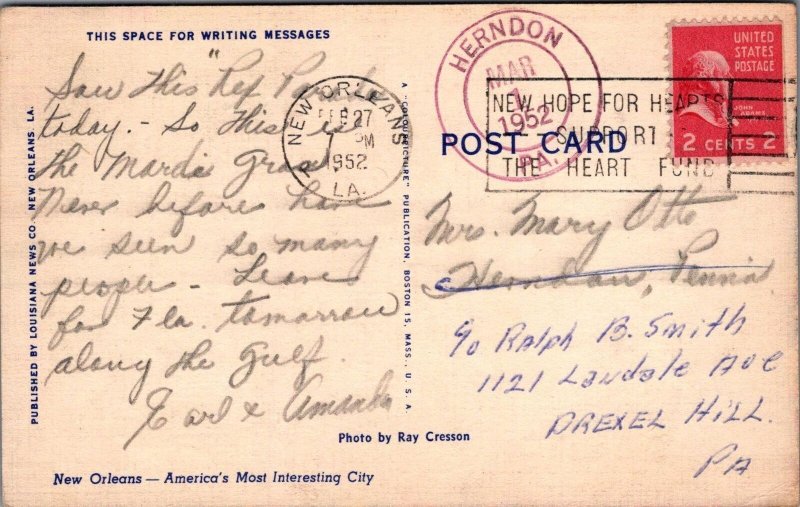 THIS SPACE FOR WRITING MESSAGES
Saw this "Rex Parade
today. - So this is
the Mardi Gras.
Never before have
we seen so many
people - Leave
for Fla. tomorrow
along the Gulf.
Earl & Amanda
PUBLISHED BY LOUISIANA NEWS CO. NEW ORLEANS, LA.
New Orleans — America's Most Interesting City
A "COLOURPICTURE" PUBLICATION, BOSTON 15, MASS., U. S. A.
Photo by Ray Cresson
NEW ORLEANS
FEB 27
PM
1952
LA.
HERNDON
MAR
1
1952
PA.
NEW HOPE FOR HEARTS
SUPPORT
THE HEART FUND
UNITED
STATES
POSTAGE
JOHN
ADAMS
2 CENTS 2
POST CARD
Mrs. Mary Otto
Herndon, Penna.
c/o Ralph B. Smith
1121 Landale Ave
DREXEL HILL.
PA